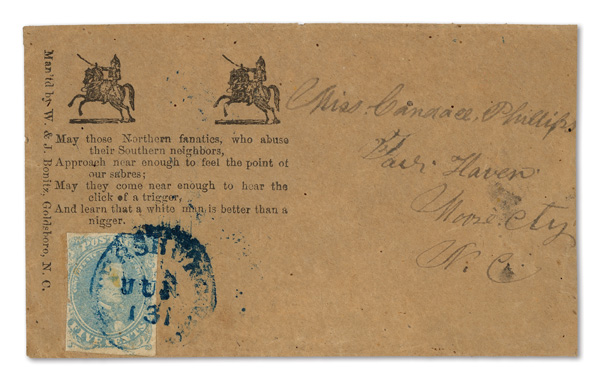 Man'fd by W. & J. Bonitz, Goldsboro, N. C.
May those Northern fanatics, who abuse
their Southern neighbors,
Approach near enough to feel the point of
our sabres;
May they come near enough to hear the
click of a trigger,
And learn that a white man is better than a
nigger.
Miss. Candace, Phillips
Fair Haven
Moore Cty
N. C
POST
FIVE CENTS
RSBURG
JUN
13